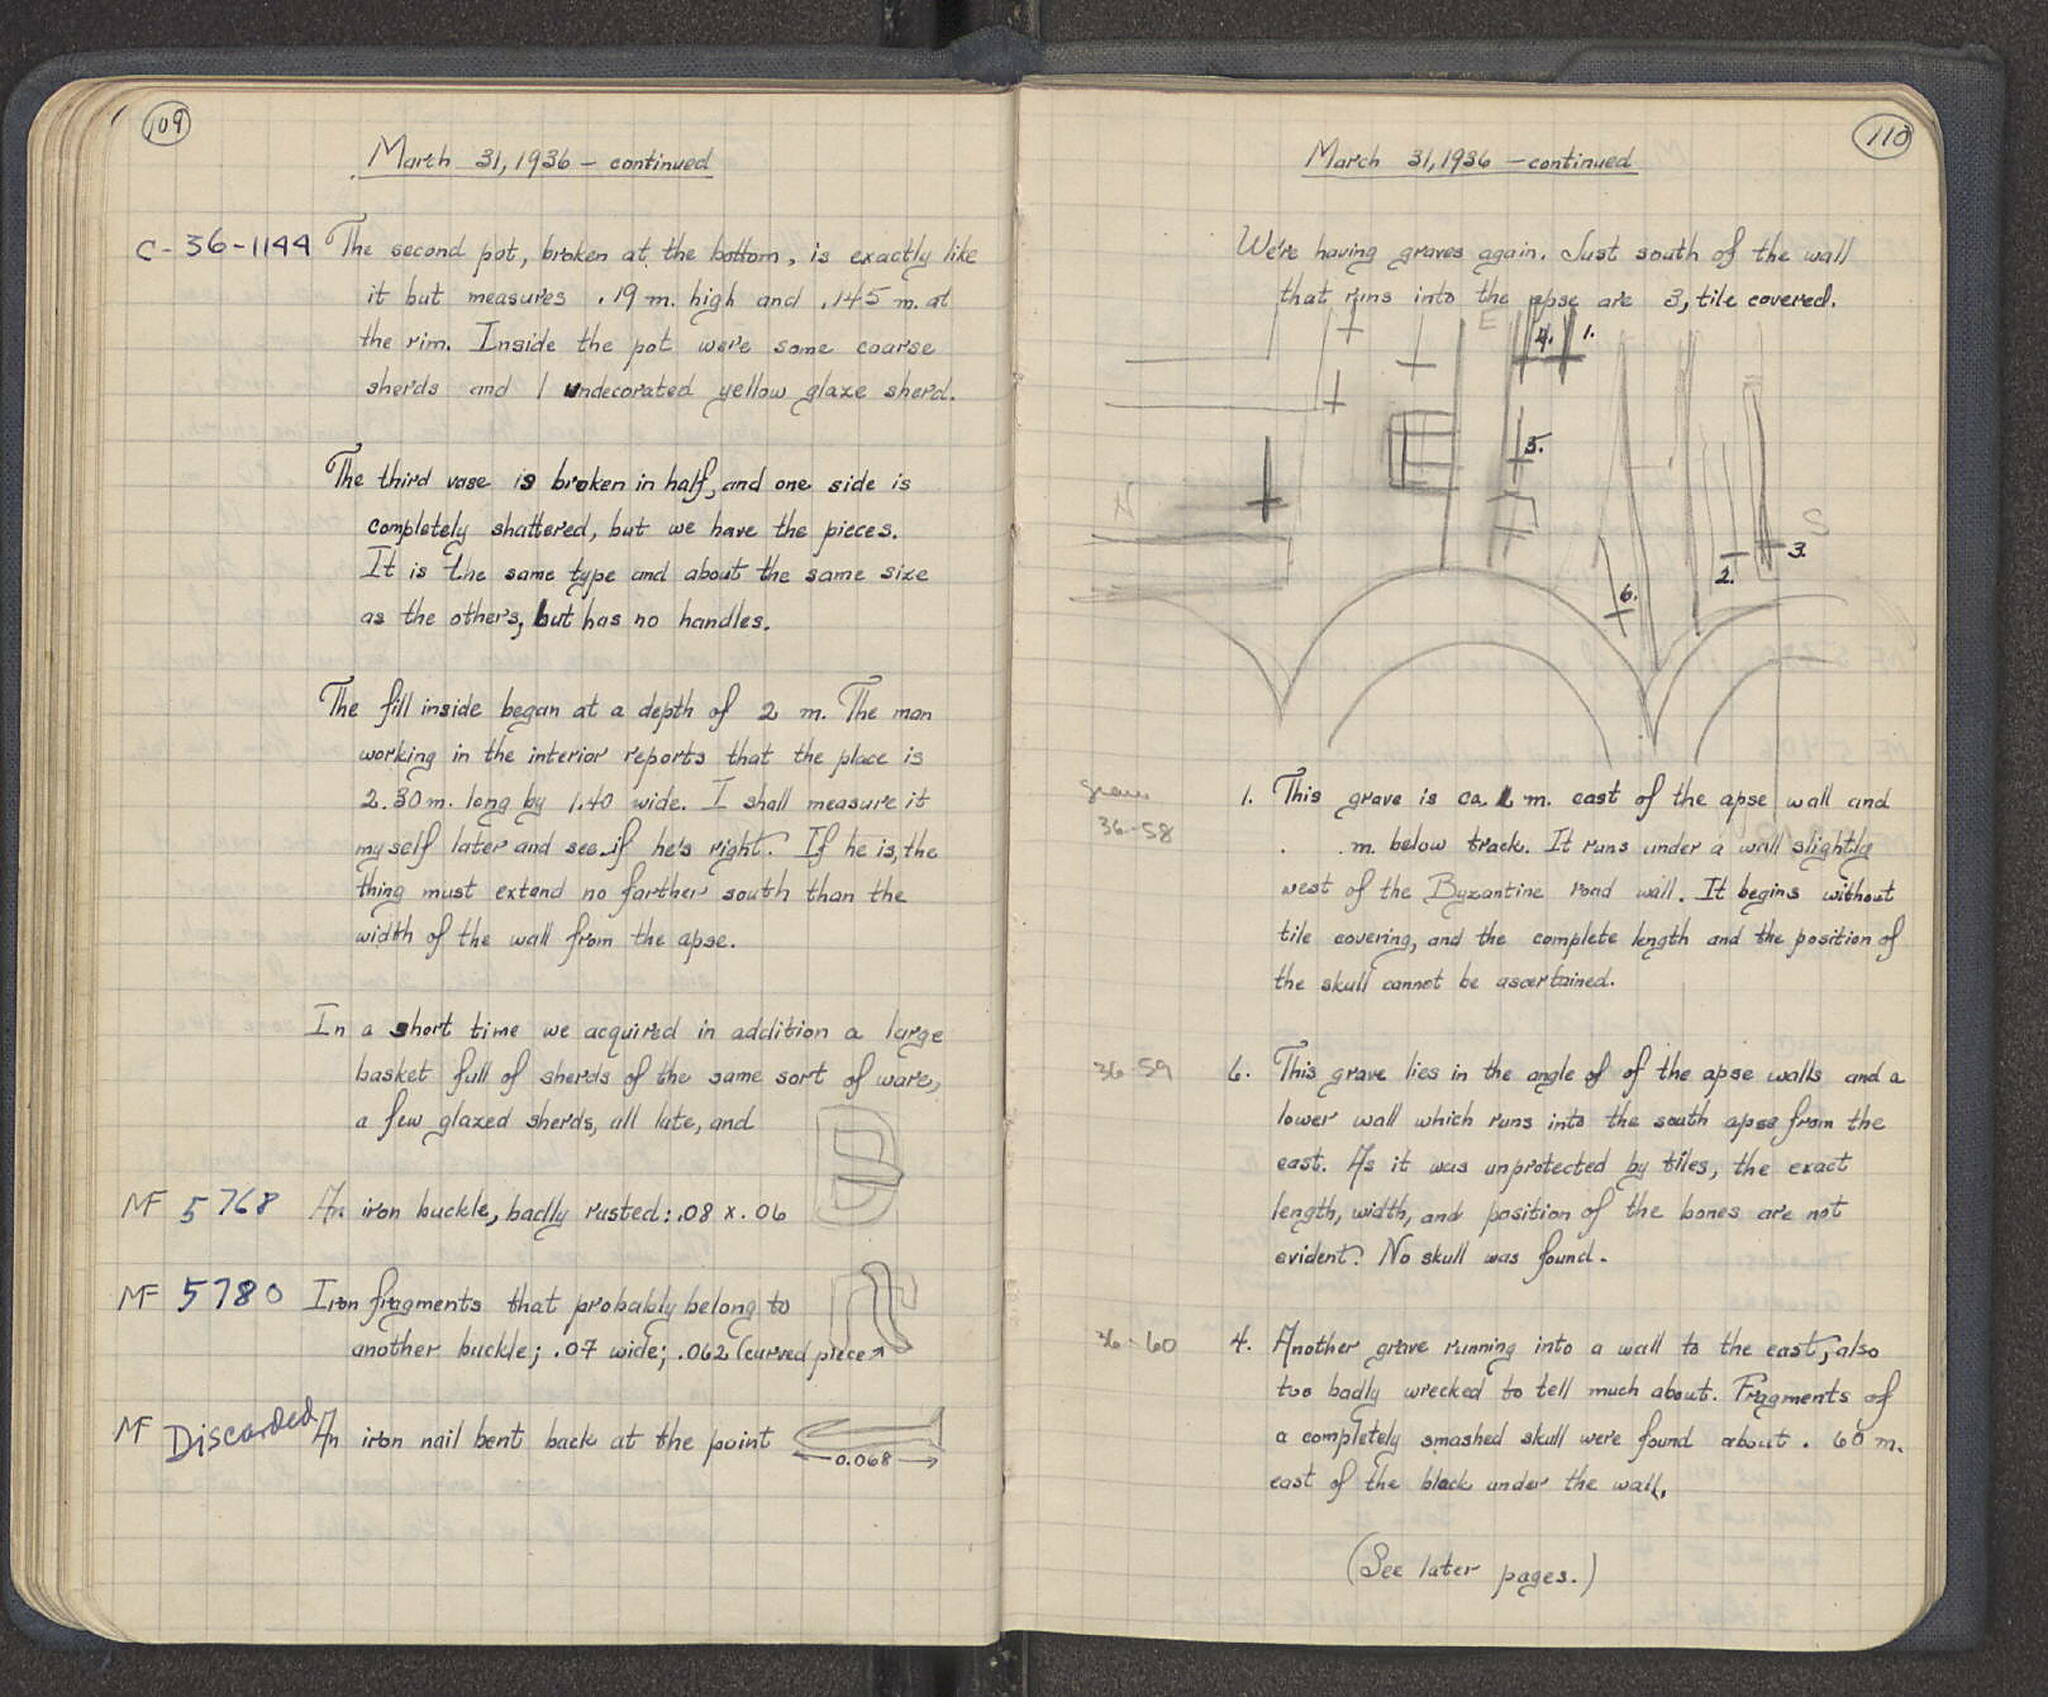 109
March 31, 1936 – continued
C-36-1144 The second pot, broken at the bottom, is exactly like
it but measures .19 m. high and .145 m. at
the rim. Inside the pot were some coarse
sherds and 1 undecorated yellow glaze sherd.
The third vase is broken in half, and one side is
completely shattered, but we have the pieces.
It is the same type and about the same size
as the others, but has no handles.
The fill inside began at a depth of 2 m. The man
working in the interior reports that the place is
2.30 m. long by 1.40 wide. I shall measure it
myself later and see if he's right. If he is, the
thing must extend no farther south than the
width of the wall from the apse.
In a short time we acquired in addition a large
basket full of sherds of the same sort of ware,
a few glazed sherds, all late, and
MF 5768 An iron buckle, badly rusted: .08 x .06
MF 5780 Iron fragments that probably belong to
another buckle; .07 wide; .062 (curved piece
MF Discarded An iron nail bent back at the point
0.068
110
March 31, 1936 – continued
We're having graves again. Just south of the wall
that runs into the apse are 3, tile covered.
E
4. 1.
5.
N
S
3.
2.
6.
grave
36-58
1. This grave is ca. 1 m. east of the apse wall and
. m. below track. It runs under a wall slightly
west of the Byzantine road wall. It begins without
tile covering, and the complete length and the position of
the skull cannot be ascertained.
36-59 6. This grave lies in the angle of of the apse walls and a
lower wall which runs into the south apse from the
east. As it was unprotected by tiles, the exact
length, width, and position of the bones are not
evident. No skull was found.
36-60 4. Another grave running into a wall to the east, also
too badly wrecked to tell much about. Fragments of
a completely smashed skull were found about .60 m.
east of the block under the wall.
(See later pages.)